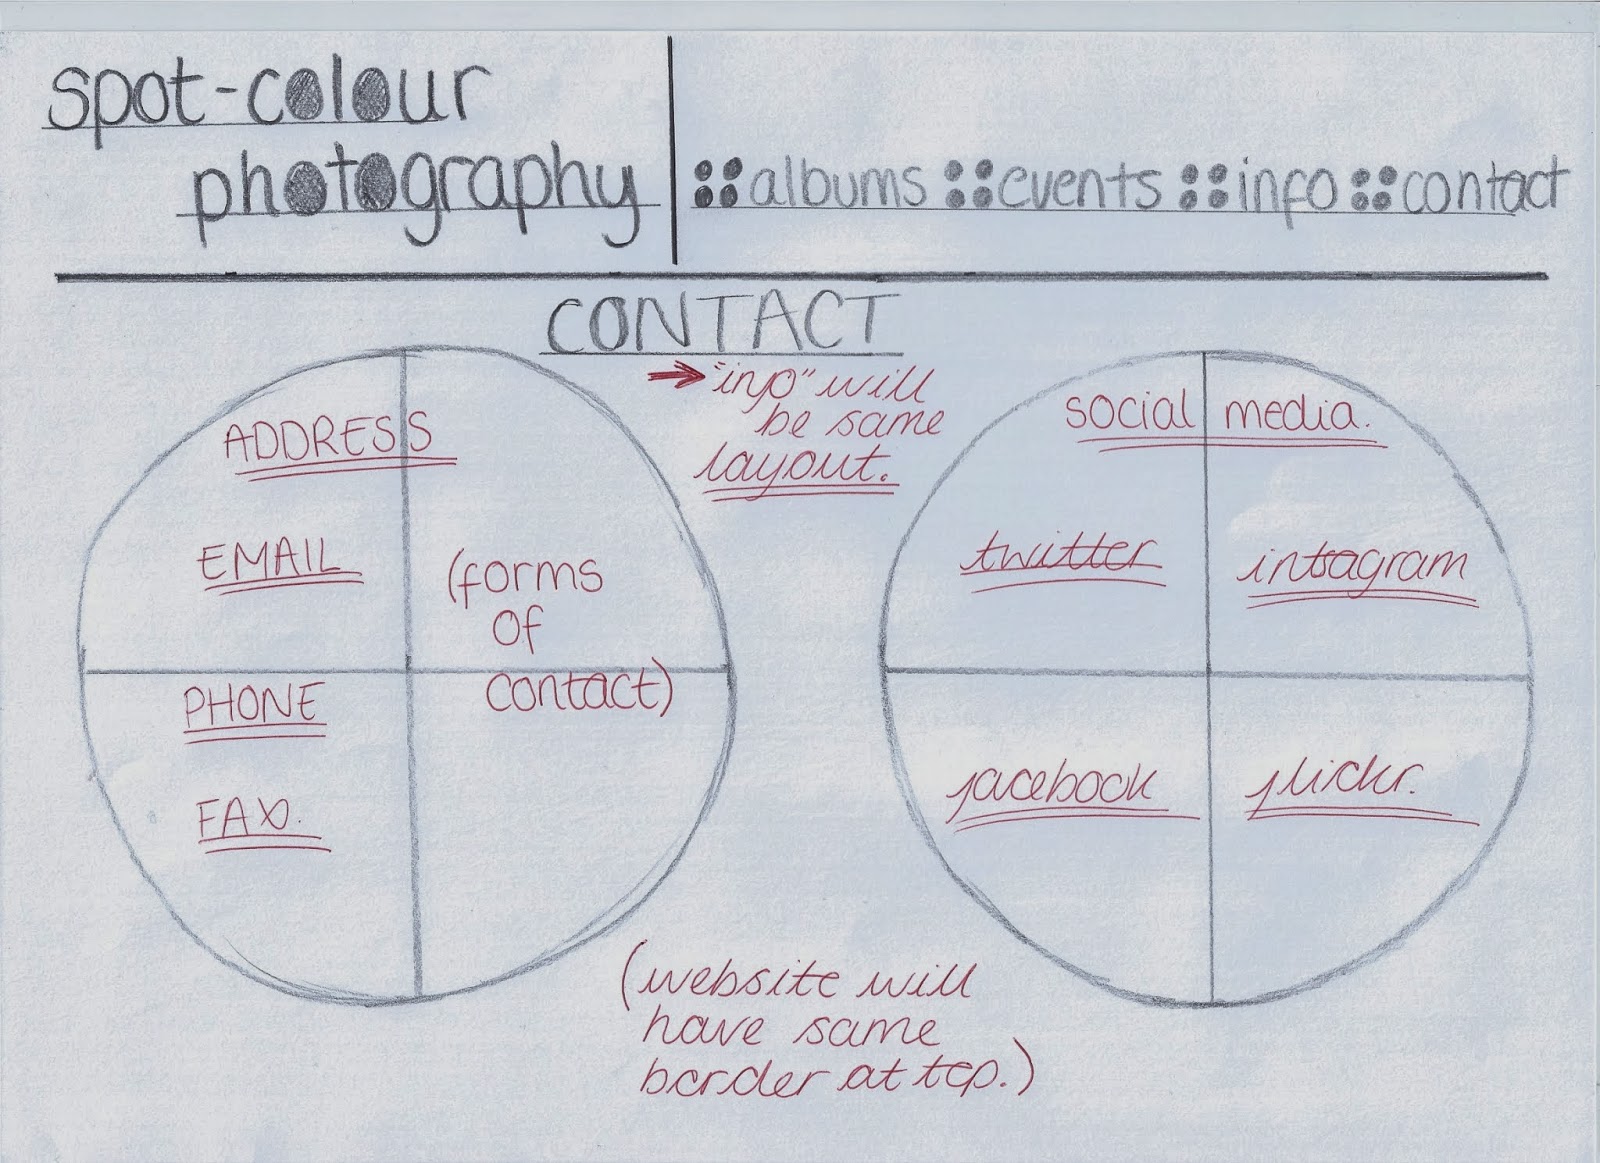 spot-colour
photography
albums events info contact
CONTACT
"info" will
be same
layout.
ADDRESS
EMAIL
(forms
of
contact)
PHONE
FAX.
social media.
twitter
intsagram
facebook
flickr.
(website will
have same
border at top.)